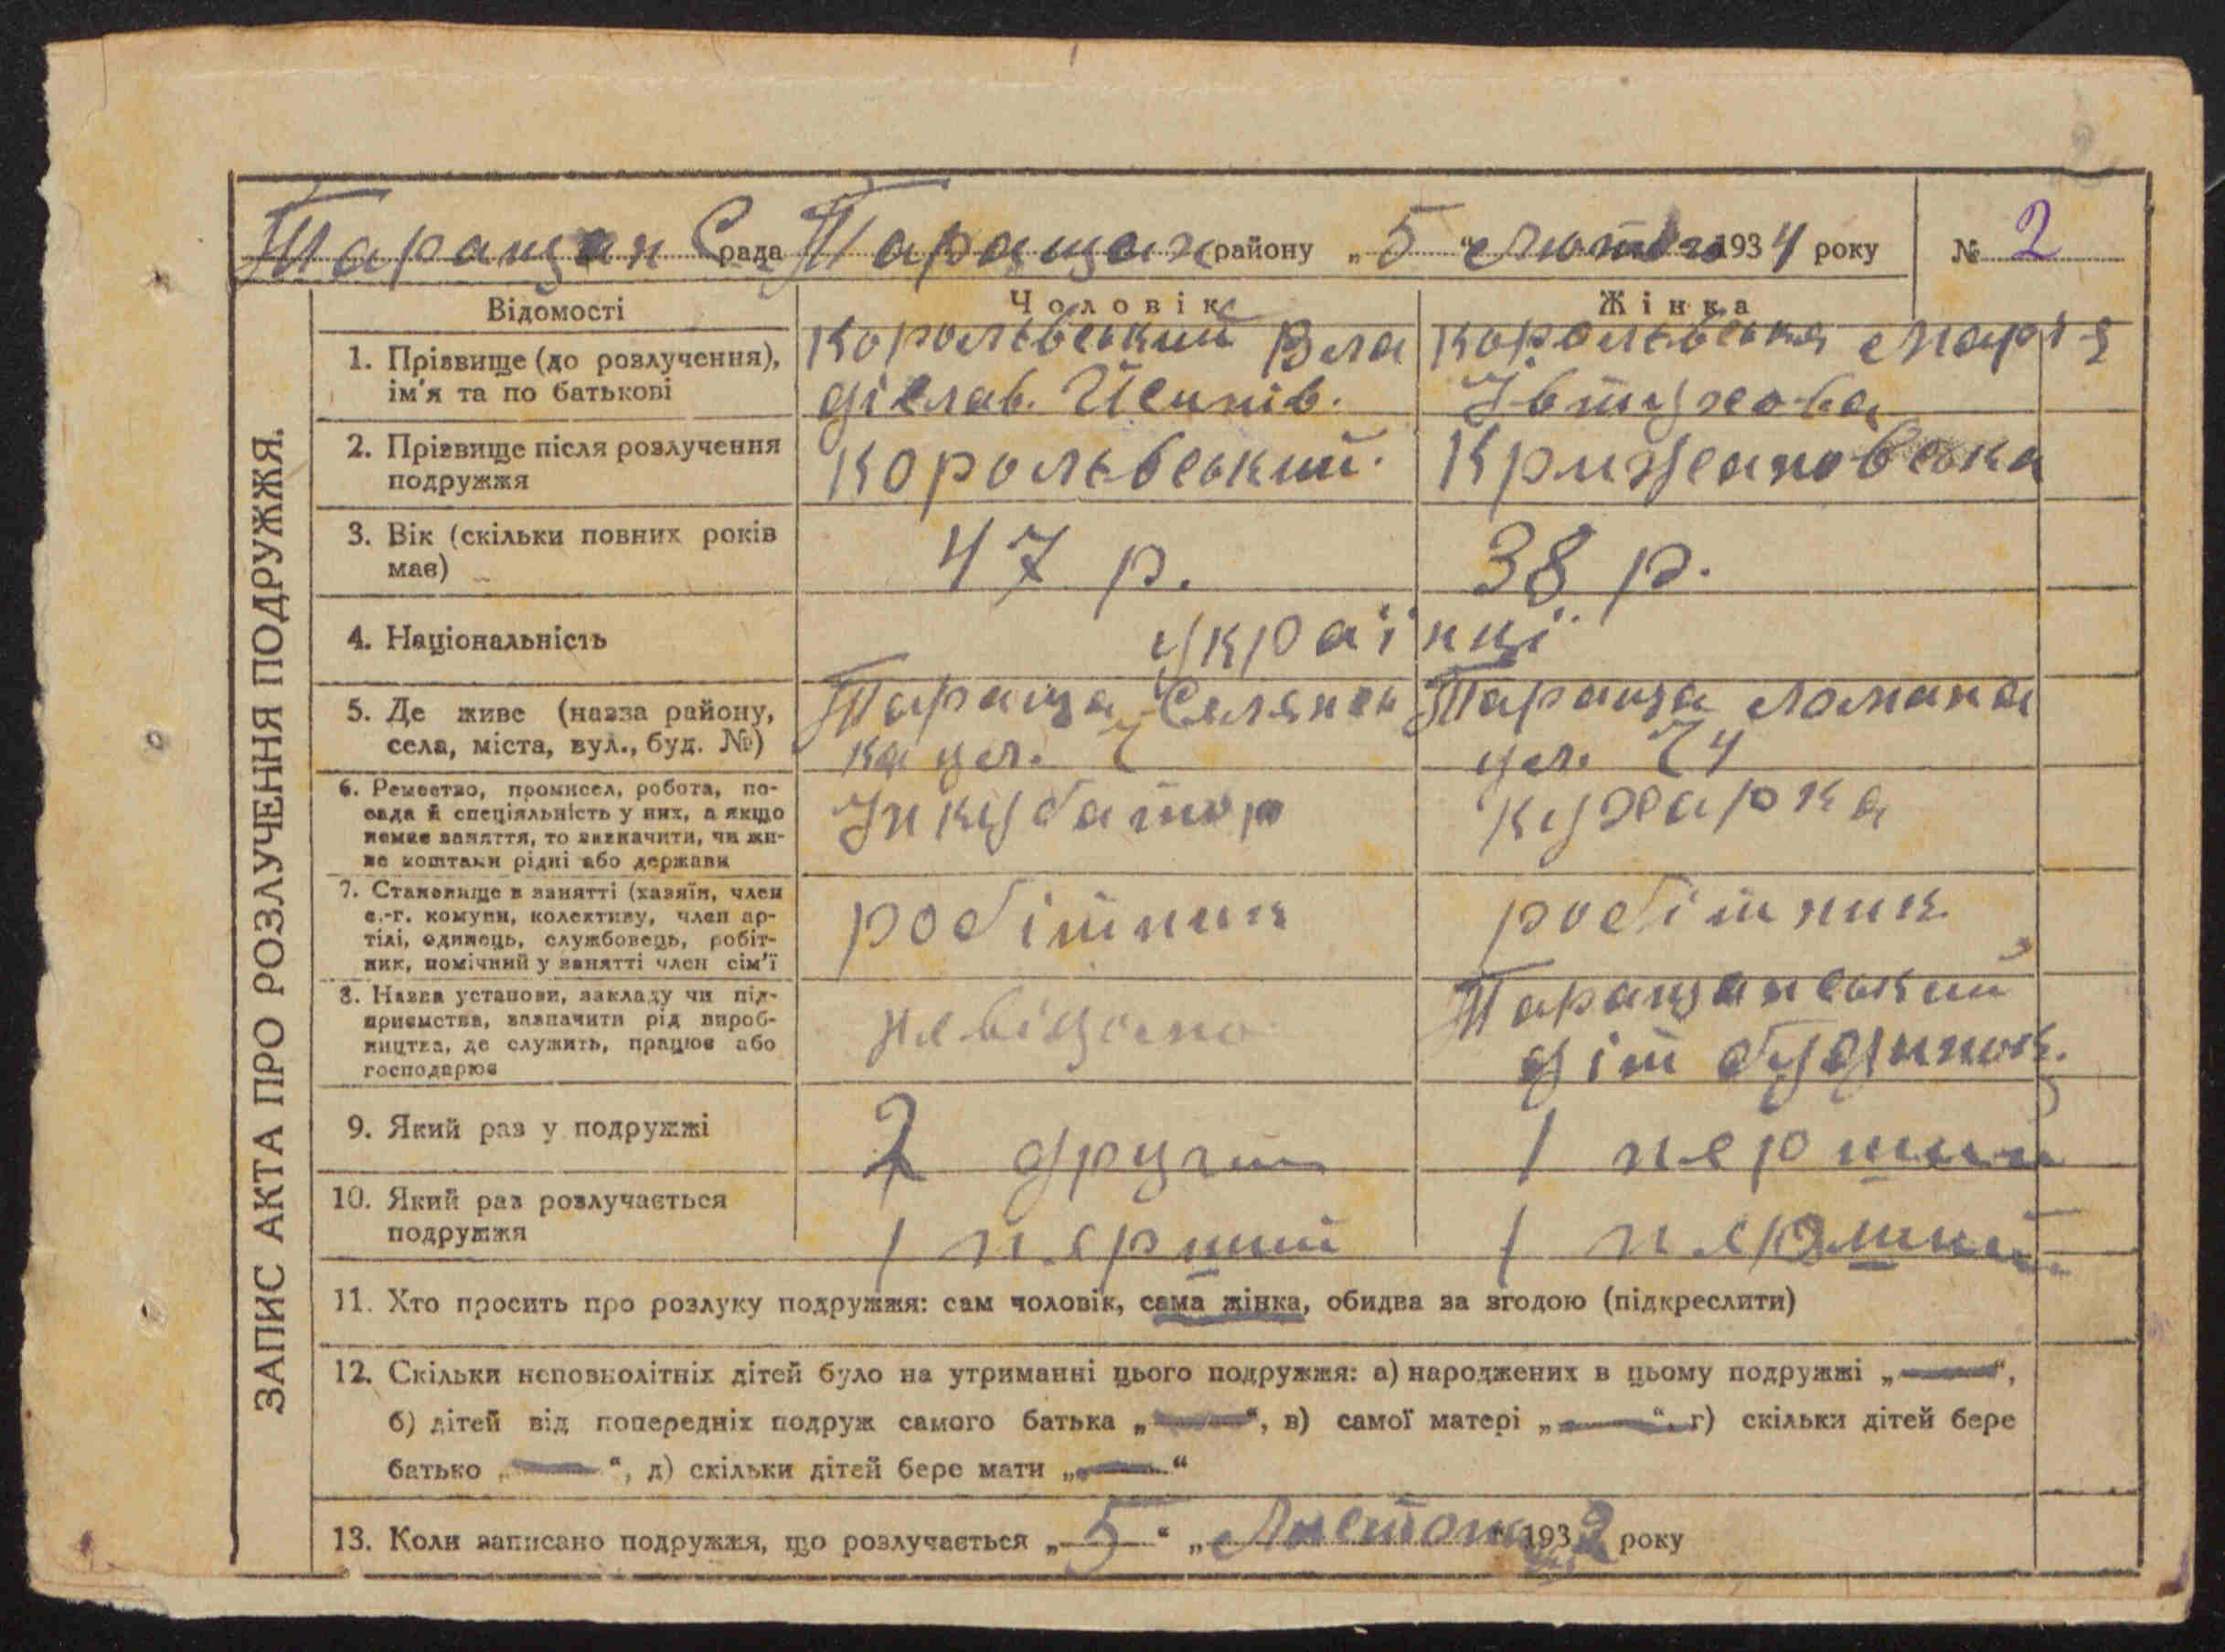 ЗАПИС АКТА ПРО РОЗЛУЧЕННЯ ПОДРУЖЖЯ.
Таращан С рада Таращан району „5“ Лютого 1934 року № 2
Відомості Чоловік Жінка
1. Прізвище (до розлучення), ім'я та по батькові
Корольвський Вла
діслав. Йсипів.
Корольвська Марія
Івтухова
2. Прізвище після розлучення подружжя
Корольвський.
Крижановська
3. Вік (скільки повних років має)
47 р.
38 р.
4. Національність
українці
5. Де живе (назва району, села, міста, вул., буд. №)
Тараща Селянсь
ка ул. 7
Тараща
ул. 74
6. Ремество, промисел, робота, по-
сада й спеціяльність у них, а якщо
немає заняття, то зазначити, чи жи-
ве коштами рідні або держави
Інкубатор
кухарка
7. Становище в занятті (хазяїн, член
с.-г. комуни, колективу, член ар-
тілі, одинець, службовець, робіт-
ник, помічний у занятті член сім'ї
робітник
робітник
8. Назва установи, закладу чи під-
приємства, зазначити рід вироб-
ництва, де служить, працює або
господарює
невідомо
Таращанський
діт будинок.
9. Який раз у подружжі
2 другий
1 перший
10. Який раз розлучається подружжя
1 перший
1 перший
11. Хто просить про розлуку подружжя: сам чоловік, сама жінка, обидва за згодою (підкреслити)
12. Скільки неповнолітніх дітей було на утриманні цього подружжя: а) народжених в цьому подружжі „—“,
б) дітей від попередніх подруж самого батька „—“, в) самої матері „—“ г) скільки дітей бере
батько „—“, д) скільки дітей бере мати „—“
13. Коли записано подружжя, що розлучається „5“ „Листопад 1932 року